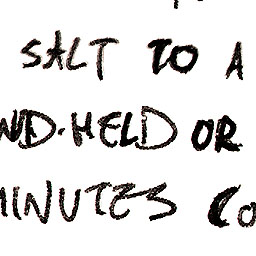 SALT TO A
ND-HELD OR
MINUTES CO